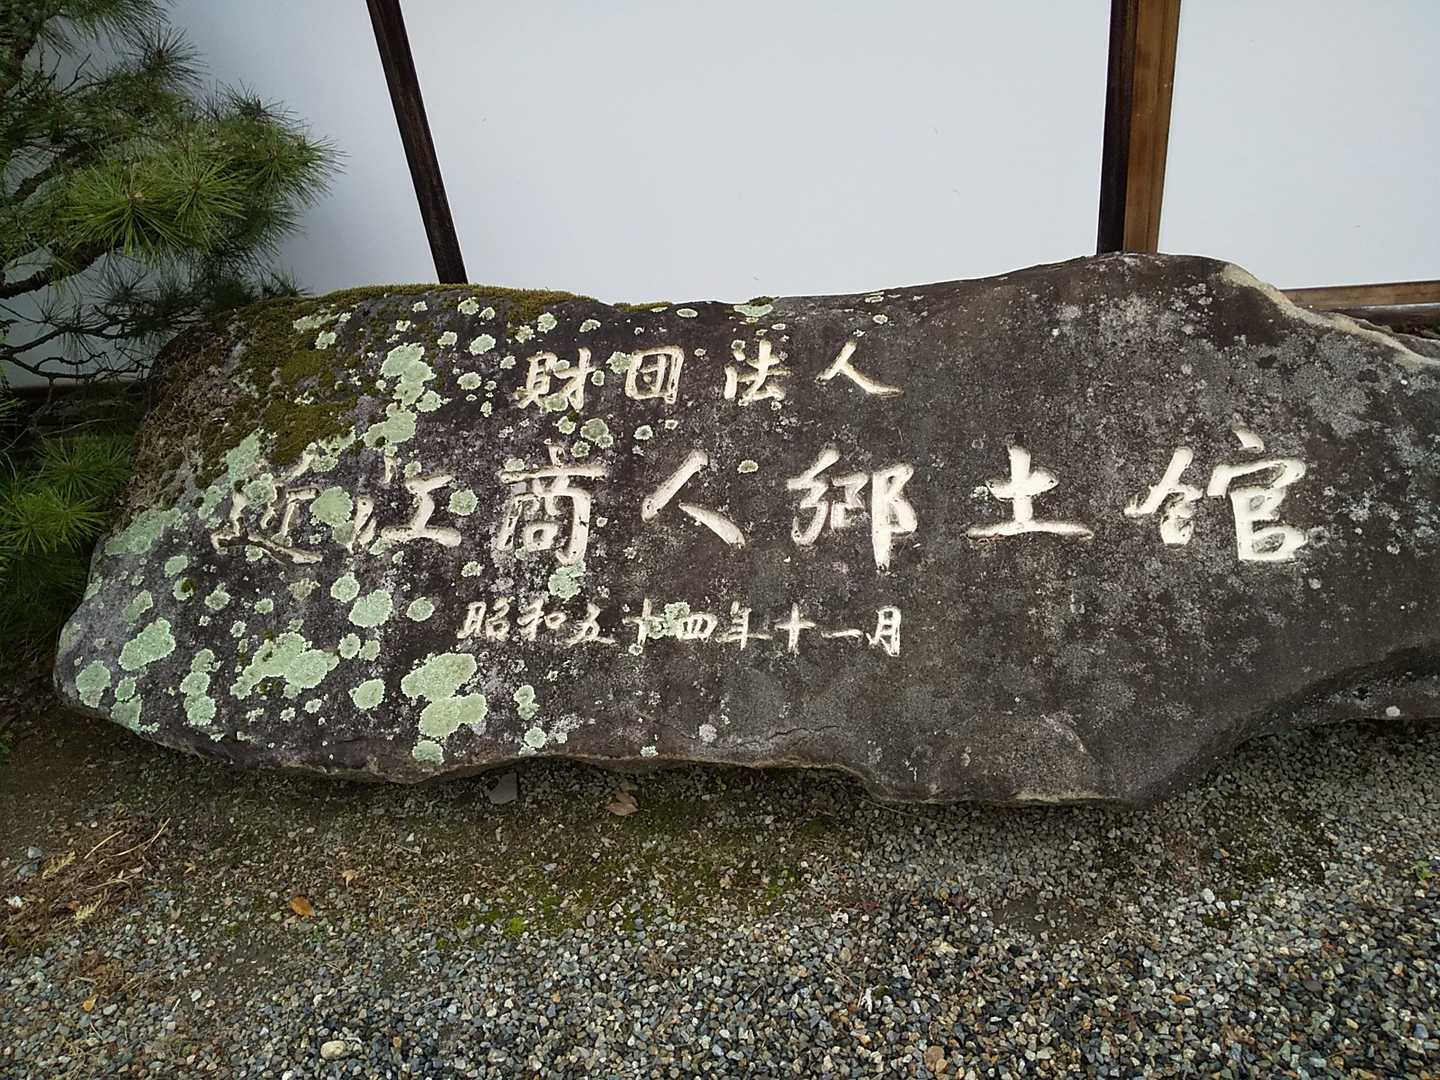 財団法人
近江商人郷土館
昭和五十四年十一月